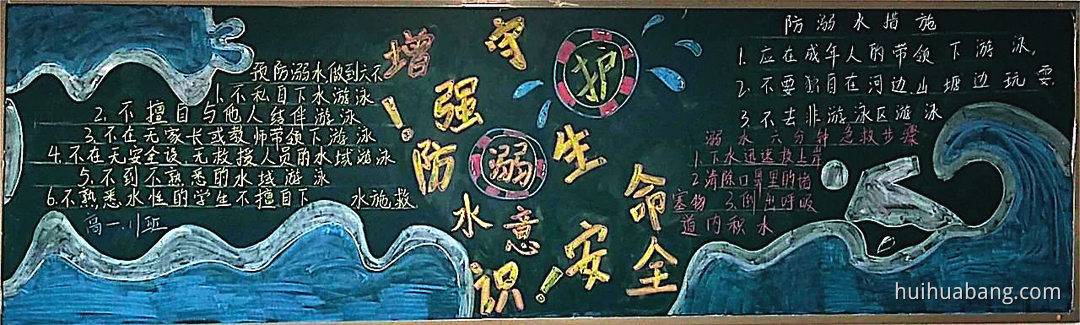 预防溺水做到六不
1.不私自下水游泳
2.不擅自与他人结伴游泳
3.不在无家长或教师带领下游泳
4.不在无安全设、无救援人员的水域游泳
5.不到不熟悉的水域游泳
6.不熟悉水性的学生不擅自下 水施救
高一.川班
增强防溺水意识!
守护生命安全
防溺水措施
1.应在成年人的带领下游泳,
2.不要独自在河边山塘边玩耍
3.不去非游泳区游泳
溺水六分钟急救步骤
1.下水迅速救上岸
2.清除口鼻里的
塞物 3.倒出呼吸
道内积水
huihuabang.com